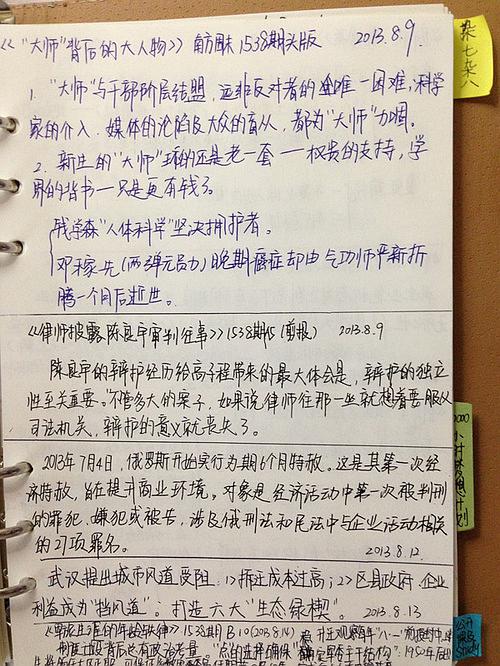 《"大师"背后的大人物》南方周末 1538期头版 2013.8.9.
1. "大师"与干部阶层结盟,远非反对者的唯一困难,科学
家的介入、媒体的沦陷及大众的盲从,都为"大师"加冕。
2. 新生的"大师"玩的还是老一套——权贵的支持,学
界的背书——只是更有钱了。
钱学森"人体科学"坚决拥护者。
邓稼先(两弹元勋)晚期癌症却由气功师严新折
腾一个月后逝世。
《律师披露陈良宇审判往事》1538期 (剪报) 2013.8.9
陈良宇的辩护经历给高子程带来的最大体会是,辩护的独立
性至关重要。"不管多大的案子,如果说律师往那一坐就想着要服从
司法机关,辩护的意义就丧失了。
2013年7月4日,俄罗斯开始实行为期6个月特赦。这是其第一次经
济特赦,旨在提升商业环境。对象是经济活动中第一次被判刑
的罪犯、嫌犯或被告,涉及俄刑法和民法中与企业活动相关
的27项罪名。 2013.8.12.
武汉提出城市风道受阻:1>拆迁成本过高;2>区县政府、企业
利益成为"挡风道";打造六大"生态绿楔"。 2013.8.13
杂七杂八